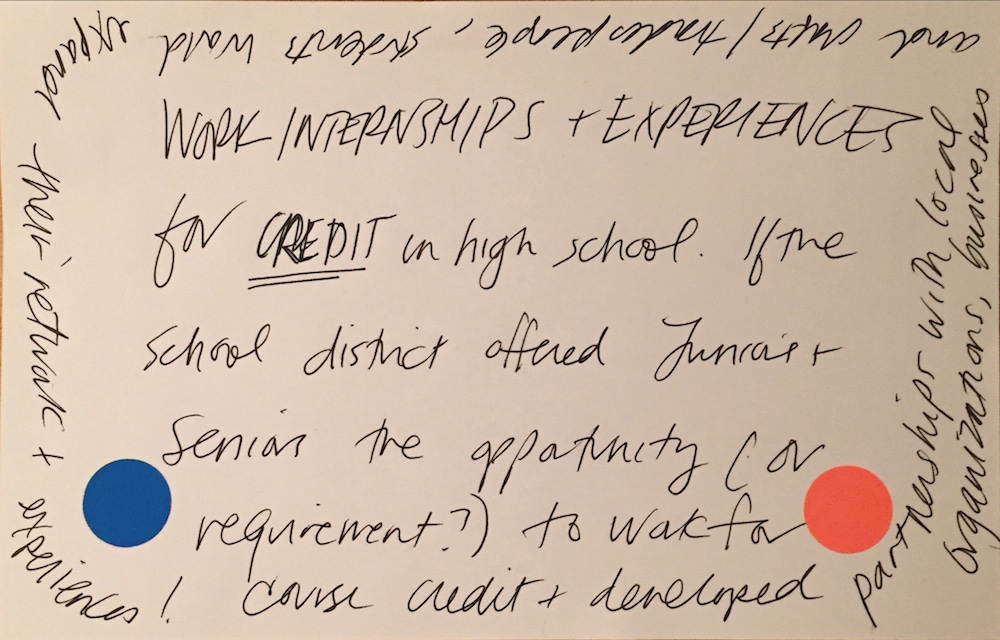 WORK/INTERNSHIPS + EXPERIENCES
for CREDIT in high school. If the
school district offered Juniors +
Seniors the opportunity (or
requirement?) to work for
course credit + developed
partnerships with local
organizations, businesses
and crafts/tradespeople, students would
expand their network +
experiences!